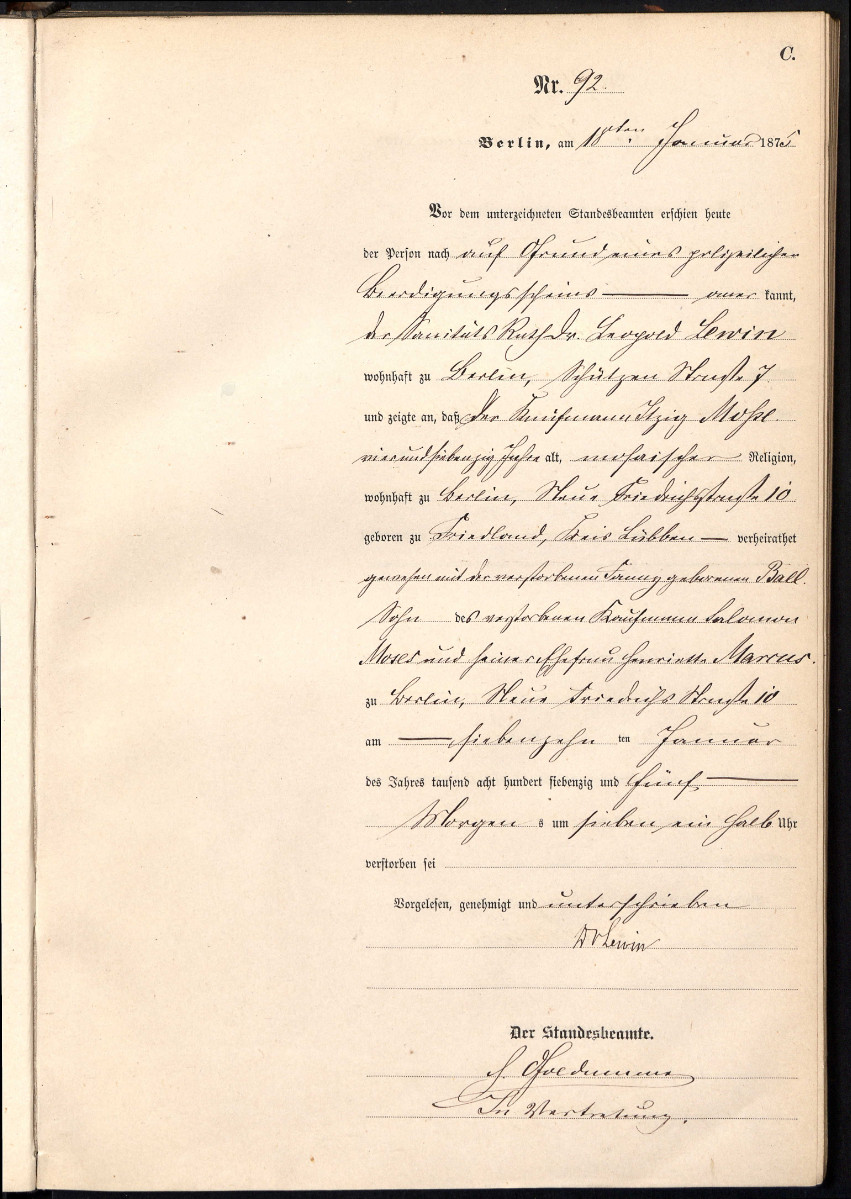 C.
Nr. 92.
Berlin, am 18ten Januar 1875
Vor dem unterzeichneten Standesbeamten erschien heute
der Person nach auf Grund eines polizeilichen
Beerdigungsscheins — aner kannt,
der Sanitäts Rath Dr. Leopold Lewin
wohnhaft zu Berlin, Schützen Straße 7
und zeigte an, daß der Kaufmann Itzig
vierundsiebenzig Jahre alt, mosaischer Religion,
wohnhaft zu Berlin, Neue Friedrichsstraße 10
geboren zu Friedland, Kreis Lübben — verheirathet
gewesen mit der verstorbenen Fanny geborenen Ball.
Sohn des verstorbenen Kaufmann Salomon
Moses und seiner Ehefrau Henriette Marcus.
zu Berlin, Neue Friedrichs Straße 10
am — siebenzehn ten Januar
des Jahres tausend acht hundert siebenzig und fünf —
Morgen s um sieben ein halb Uhr
verstorben sei
Vorgelesen, genehmigt und unterschrieben
Dr Lewin
Der Standesbeamte.
In Vertretung.